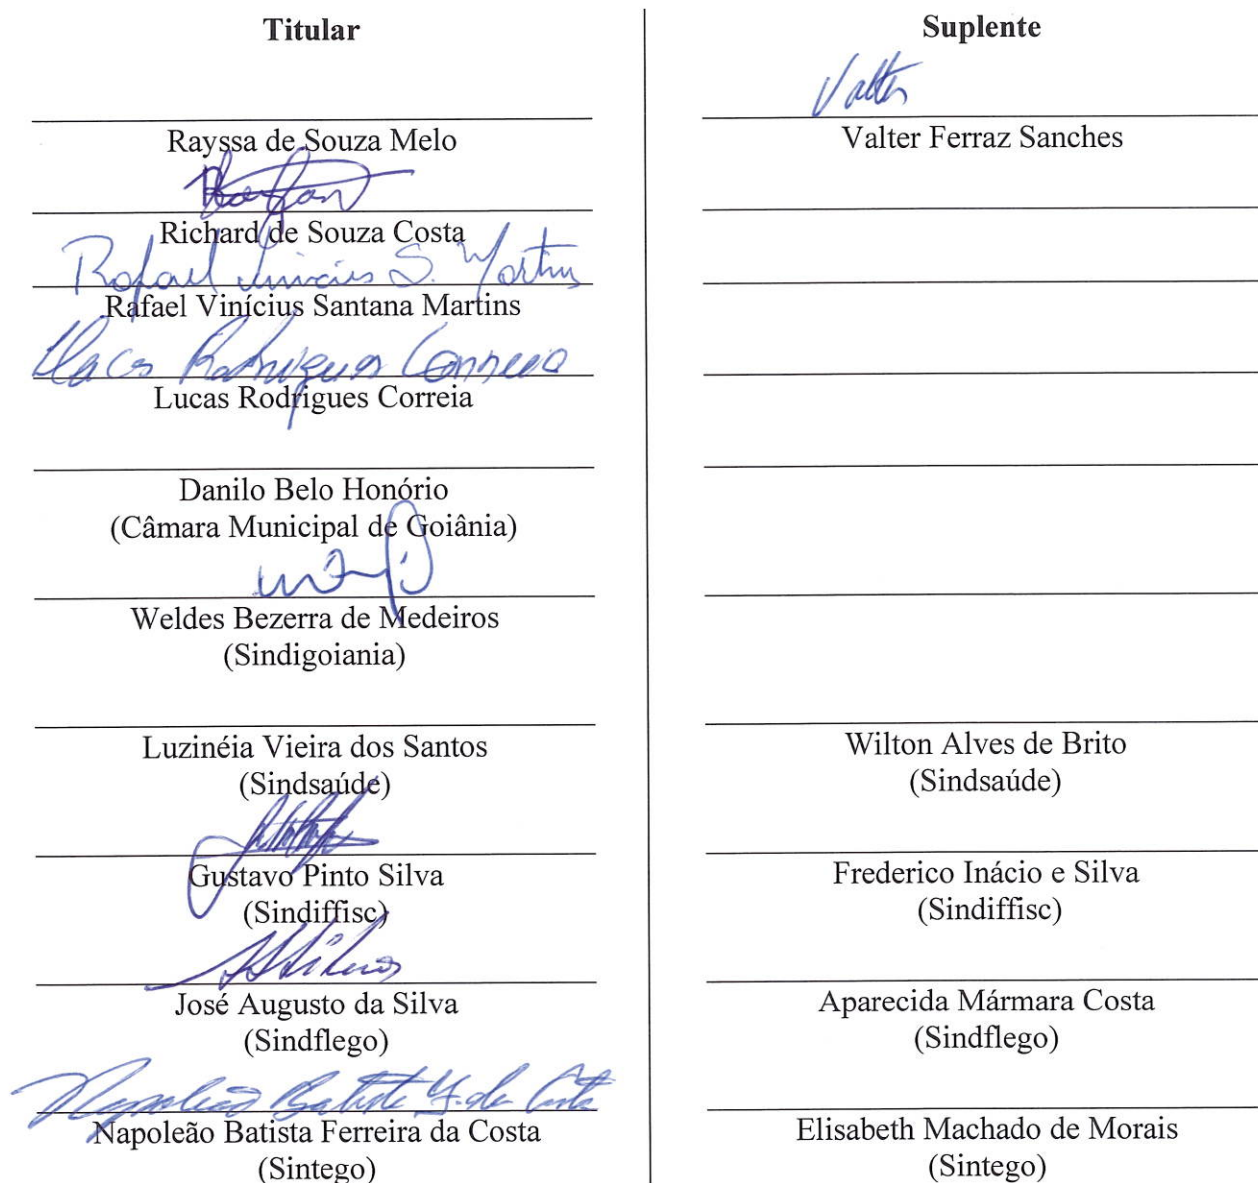 Titular
Rayssa de Souza Melo
Richard de Souza Costa
Rafael Vinicius S. Martins
Rafael Vinícius Santana Martins
Lucas Rodrigues Correia
Lucas Rodrigues Correia
Danilo Belo Honório
(Câmara Municipal de Goiânia)
Weldes Bezerra de Medeiros
(Sindigoiania)
Luzinéia Vieira dos Santos
(Sindsaúde)
Gustavo Pinto Silva
(Sindiffisc)
José Augusto da Silva
(Sindflego)
Napoleão Batista F. da Costa
Napoleão Batista Ferreira da Costa
(Sintego)
Suplente
Valter
Valter Ferraz Sanches
Wilton Alves de Brito
(Sindsaúde)
Frederico Inácio e Silva
(Sindiffisc)
Aparecida Mármara Costa
(Sindflego)
Elisabeth Machado de Morais
(Sintego)